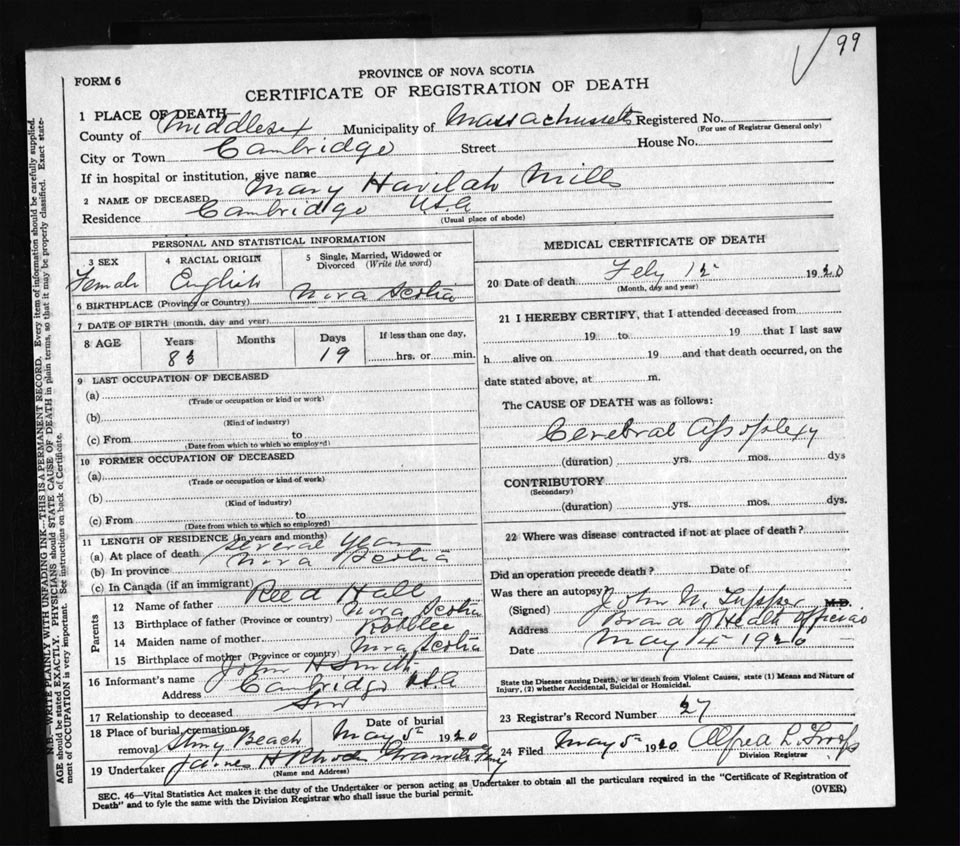 99
PROVINCE OF NOVA SCOTIA
FORM 6
CERTIFICATE OF REGISTRATION OF DEATH
1 PLACE OF DEATH
County of Middlesex Municipality of Massachusetts Registered No.
(For use of Registrar General only)
City or Town Cambridge Street House No.
If in hospital or institution, give name
2 NAME OF DECEASED Mary Havilah Mills
Residence Cambridge USA
(Usual place of abode)
PERSONAL AND STATISTICAL INFORMATION
3 SEX 4 RACIAL ORIGIN 5 Single, Married, Widowed or Divorced (Write the word)
Female English
6 BIRTHPLACE (Province or Country) Nova Scotia
7 DATE OF BIRTH (month, day and year)
8 AGE Years Months Days If less than one day,
19 hrs. or min.
9 LAST OCCUPATION OF DECEASED
(a)
(Trade or occupation or kind or work)
(b)
(Kind of industry)
(c) From to
(Date from which to which so employed)
10 FORMER OCCUPATION OF DECEASED
(a)
(Trade or occupation or kind of work)
(b)
(Kind of industry)
(c) From to
(Date from which to which so employed)
11 LENGTH OF RESIDENCE (In years and months)
(a) At place of death several years
(b) In province Nova Scotia
(c) In Canada (if an immigrant)
Parents
12 Name of father Reed Hall
13 Birthplace of father (Province or country) Nova Scotia
14 Maiden name of mother
15 Birthplace of mother (Province or country) Nova Scotia
16 Informant's name John H Smith
Address Cambridge USA
17 Relationship to deceased
18 Place of burial, cremation or removal Stony Beach Date of burial May 5 1920
19 Undertaker James H Rhode
(Name and Address)
MEDICAL CERTIFICATE OF DEATH
20 Date of death Feby 12 1920
(Month, day and year)
21 I HEREBY CERTIFY, that I attended deceased from
19 to 19 that I last saw
h alive on 19 and that death occurred, on the
date stated above, at m.
The CAUSE OF DEATH was as follows:
Cerebral Apoplexy
(duration) yrs. mos. dys
CONTRIBUTORY
(Secondary)
(duration) yrs. mos. dys.
22 Where was disease contracted if not at place of death?
Did an operation precede death? Date of
Was there an autopsy
(Signed) John W. Tupper M.D.
Address Board of Health official
Date May 4 1920
State the Disease causing Death, or in death from Violent Causes, state (1) Means and Nature of
Injury, (2) whether Accidental, Suicidal or Homicidal.
23 Registrar's Record Number 27
24 Filed May 5 1920 Alfred L
Division Registrar
SEC. 46—Vital Statistics Act makes it the duty of the Undertaker or person acting as Undertaker to obtain all the particulars required in the "Certificate of Registration of
Death" and to fyle the same with the Division Registrar who shall issue the burial permit.
(OVER)
N.B.—WRITE PLAINLY WITH UNFADING INK—THIS IS A PERMANENT RECORD. Every item of information should be carefully supplied.
AGE should be stated EXACTLY. PHYSICIANS should STATE CAUSE OF DEATH in plain terms, so that it may be properly classified. Exact state-
ment of OCCUPATION is very important. See instructions on back of Certificate.